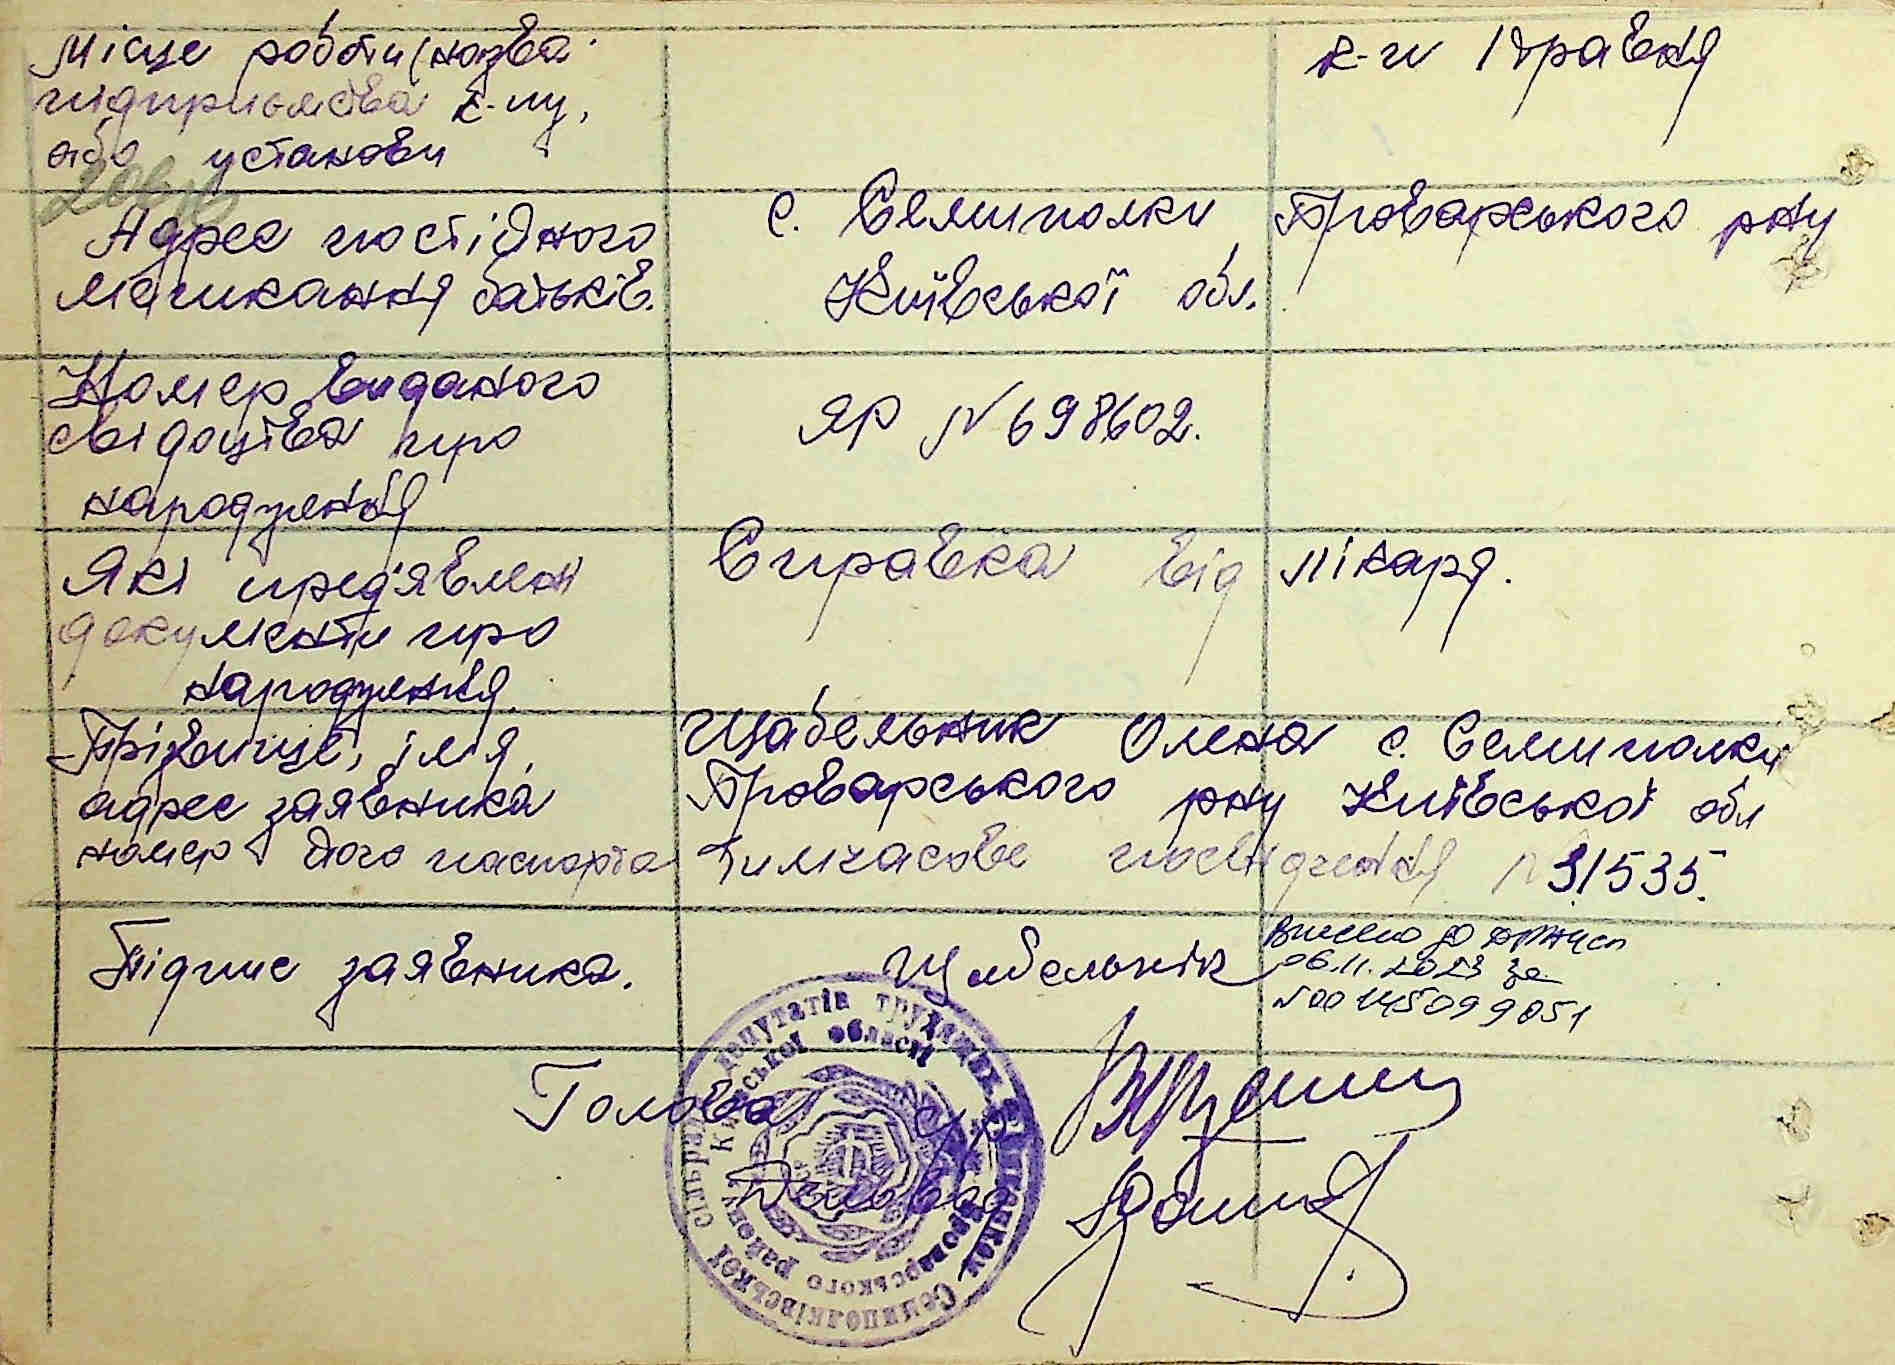 Місце роботи (назва
підприємства к-пу,
або установи
к-п 1 травня
Адрес постійного
мешкання батьків.
с. Семиполки Броварського р-ну
Київської обл.
Номер виданого
свідоцтва про
народження
ЯР № 698602.
Які пред'явлен
документи про
народження.
Справка від лікаря.
Прізвище, імя,
адрес заявника
номер його паспорта
Щабельник Олена с. Семиполки
Броварського р-ну Київської обл
Тимчасове посвідчення № 31535.
Підпис заявника.
Щабельнік
Внесено до ДРАЦСГ
06.11.2023 за
№ 00145099051
Голова с/р
Діловод
Виконком Семиполківської сільради депутатів трудящих
Броварського району Київської області